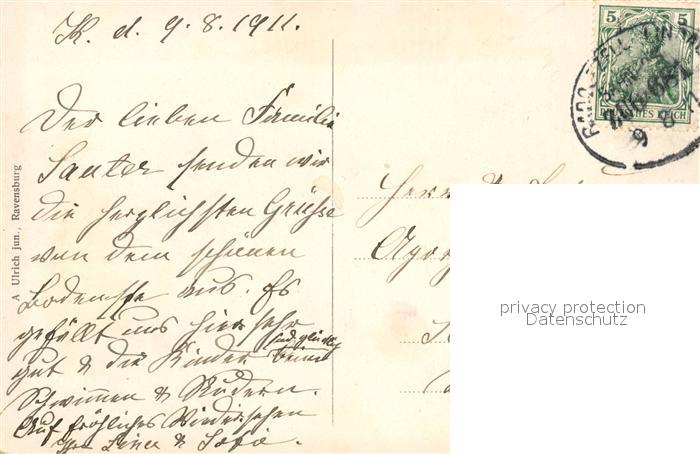 K. d. 9.8.1911.
Der lieben Familie
Sauter senden wir
die herzlichsten Grüsse
von dem schönen
Bodensee aus. Es
gefällt uns hier sehr
gut & die Kinder sind glücklich beim
Schwimmen & Rudern.
Auf fröhliches Wiedersehen
A Ulrich jun., Ravensburg
5
DEUTSCHES REICH
9 8 11
Herrn
privacy protection
Datenschutz